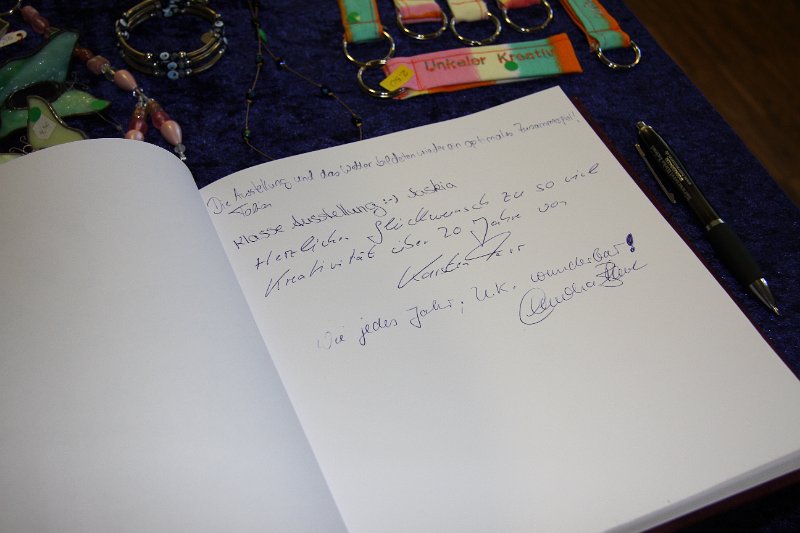 Unkeler Kreativ
2,50
Die Ausstellung und das Wetter bildeten wieder ein optimales Zusammenspiel!
Klasse Ausstellung :-) Saskia
Herzlichen Glückwunsch zu so viel
Kreativität über 20 Jahre von
Karsten
Wie jedes Jahr, U.K. wunderbar!
Claudia